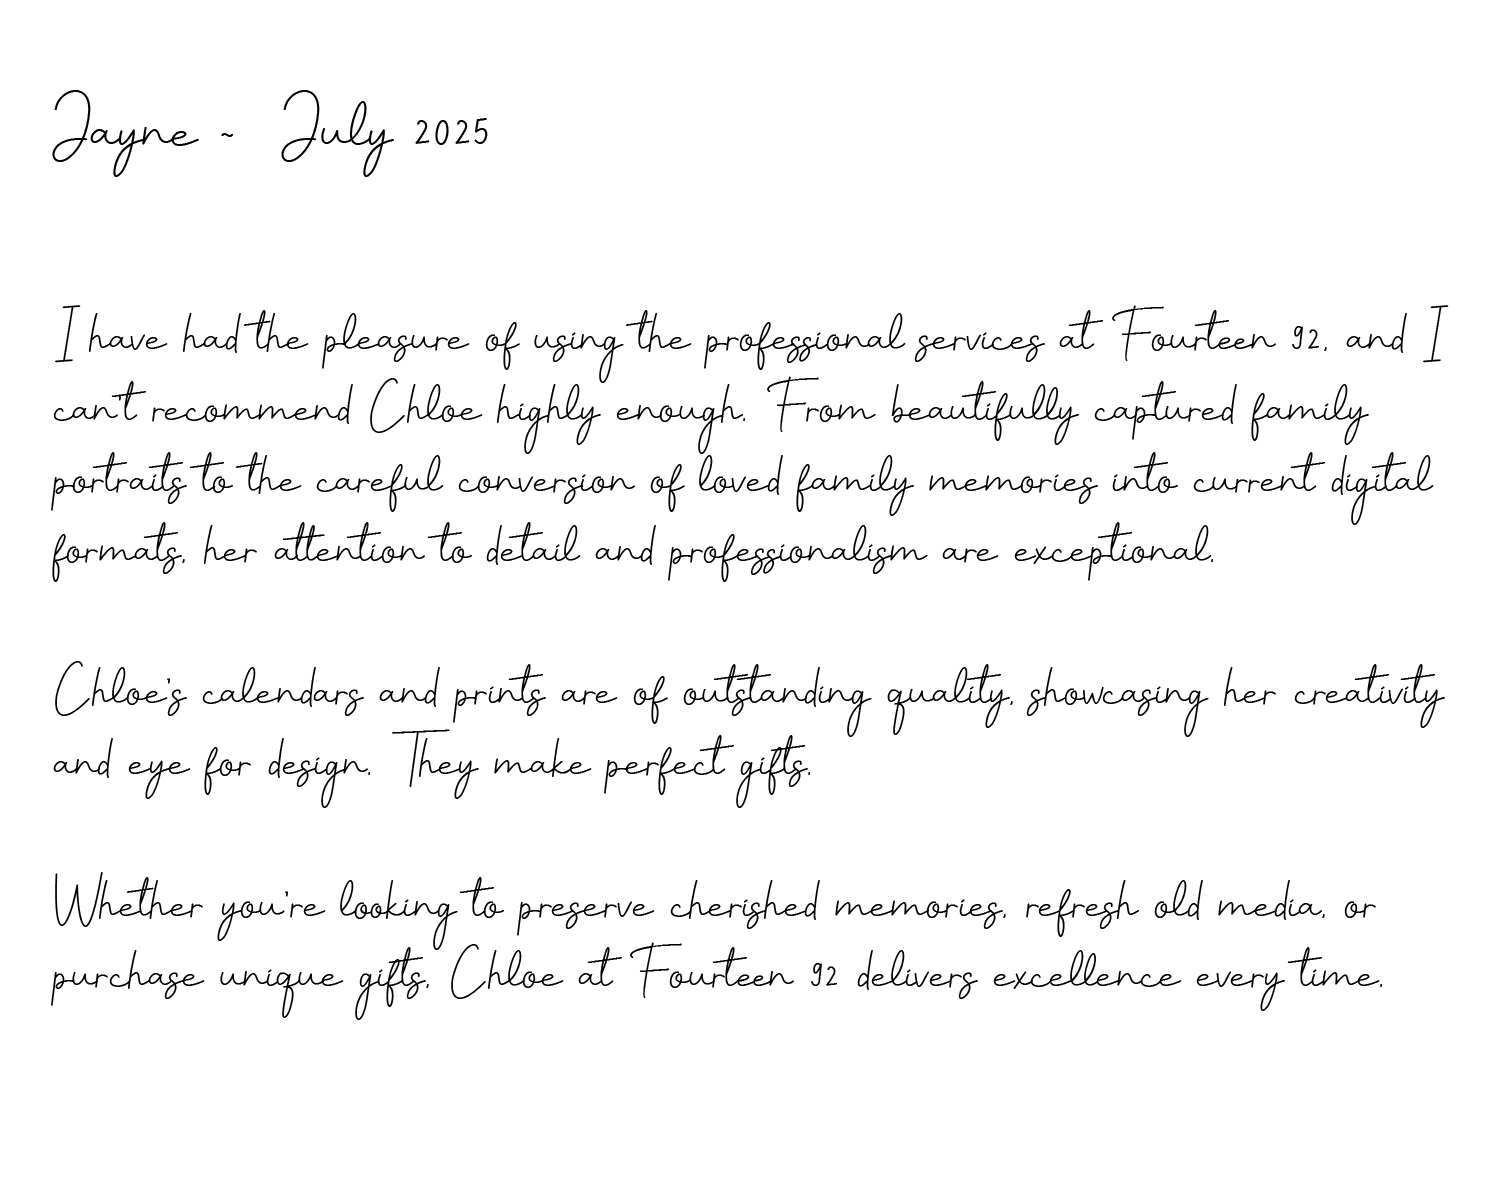 Jayne ~ July 2025
I have had the pleasure of using the professional services at Fourteen 92, and I
can't recommend Chloe highly enough. From beautifully captured family
portraits to the careful conversion of loved family memories into current digital
formats, her attention to detail and professionalism are exceptional.
Chloe's calendars and prints are of outstanding quality, showcasing her creativity
and eye for design. They make perfect gifts.
Whether you're looking to preserve cherished memories, refresh old media, or
purchase unique gifts, Chloe at Fourteen 92 delivers excellence every time.